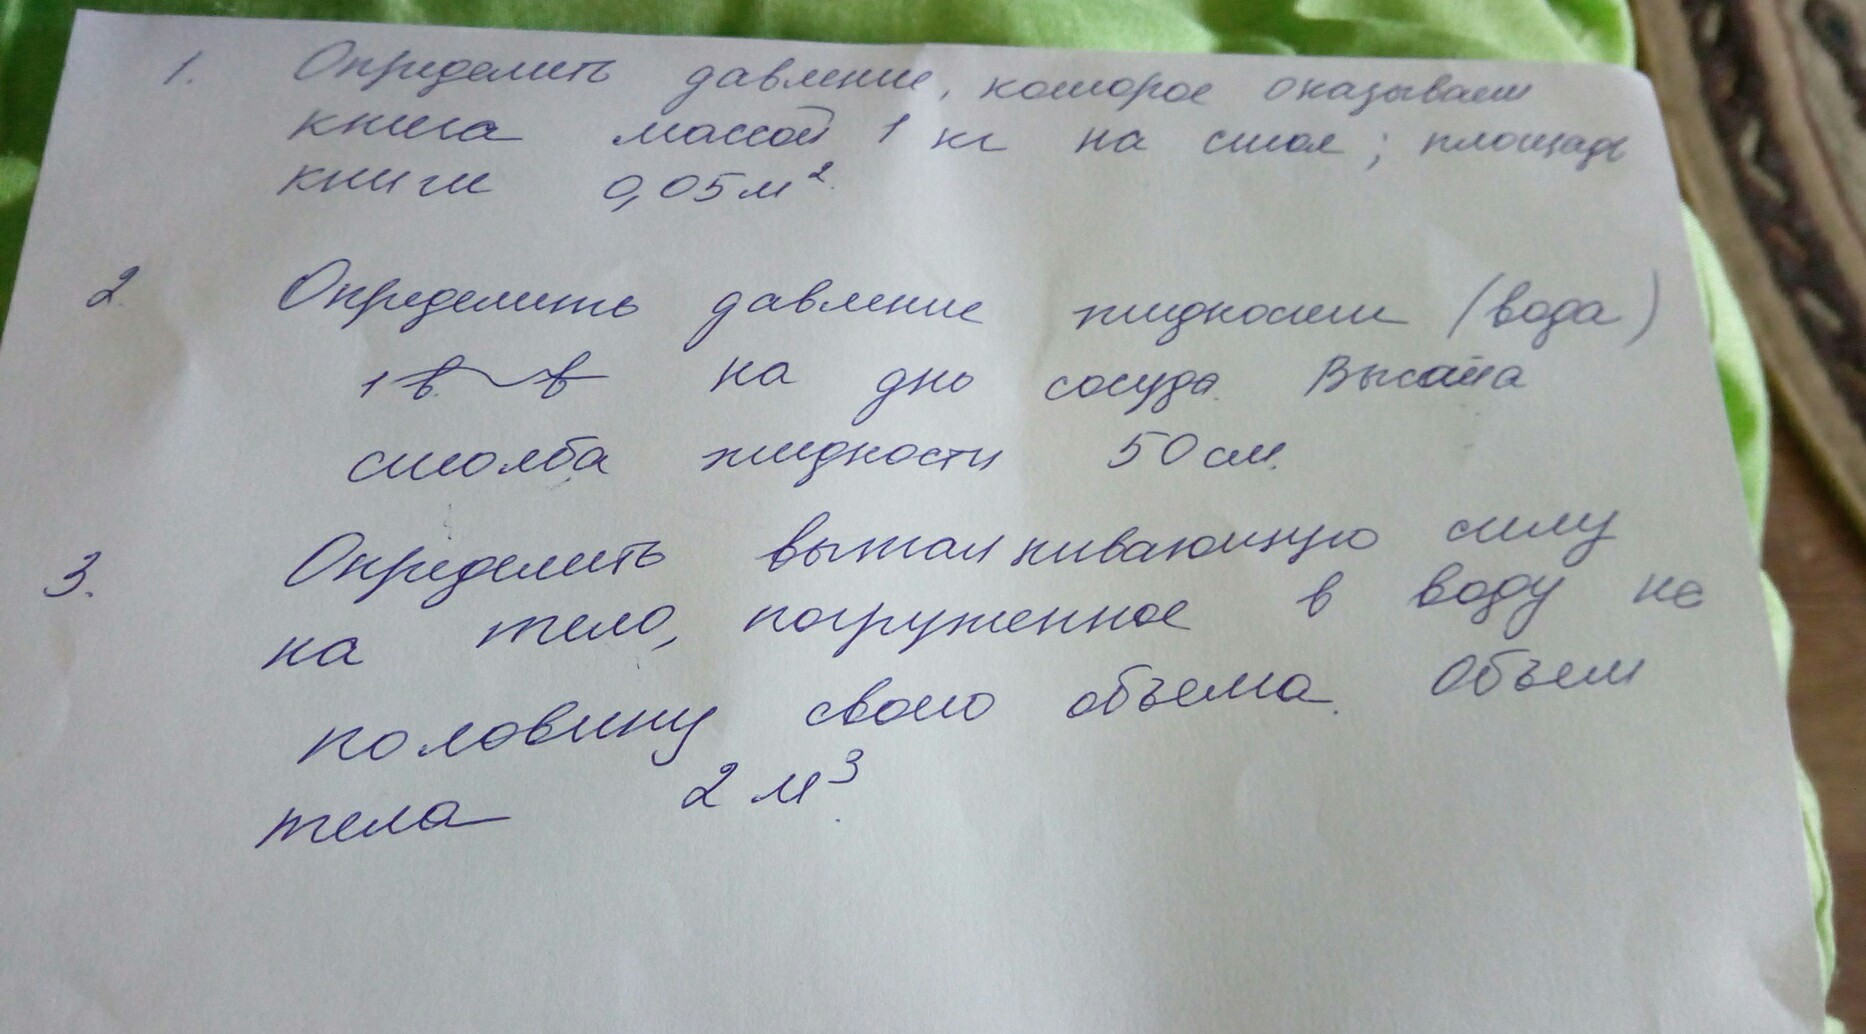 1. Определить давление, которое оказывает
книга массой 1 кг на стол; площадь
книги 0,05 м².
2. Определить давление жидкости (вода)
на дно сосуда. Высота
столба жидкости 50 см.
3. Определить выталкивающую силу
на тело, погруженное в воду на
половину своего объема. Объем
тела 2 м³.